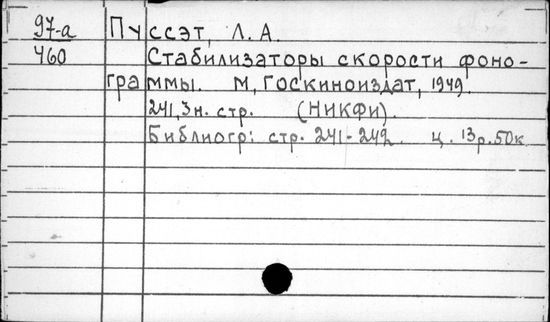 97-а Пуссэт, Л. А.
460 Стабилизаторы скорости фоно-
граммы. М, Госкиноиздат, 1949.
241, 3н. стр. (НИКФИ).
Библиогр: стр. 241-242. ц. 13р.50к